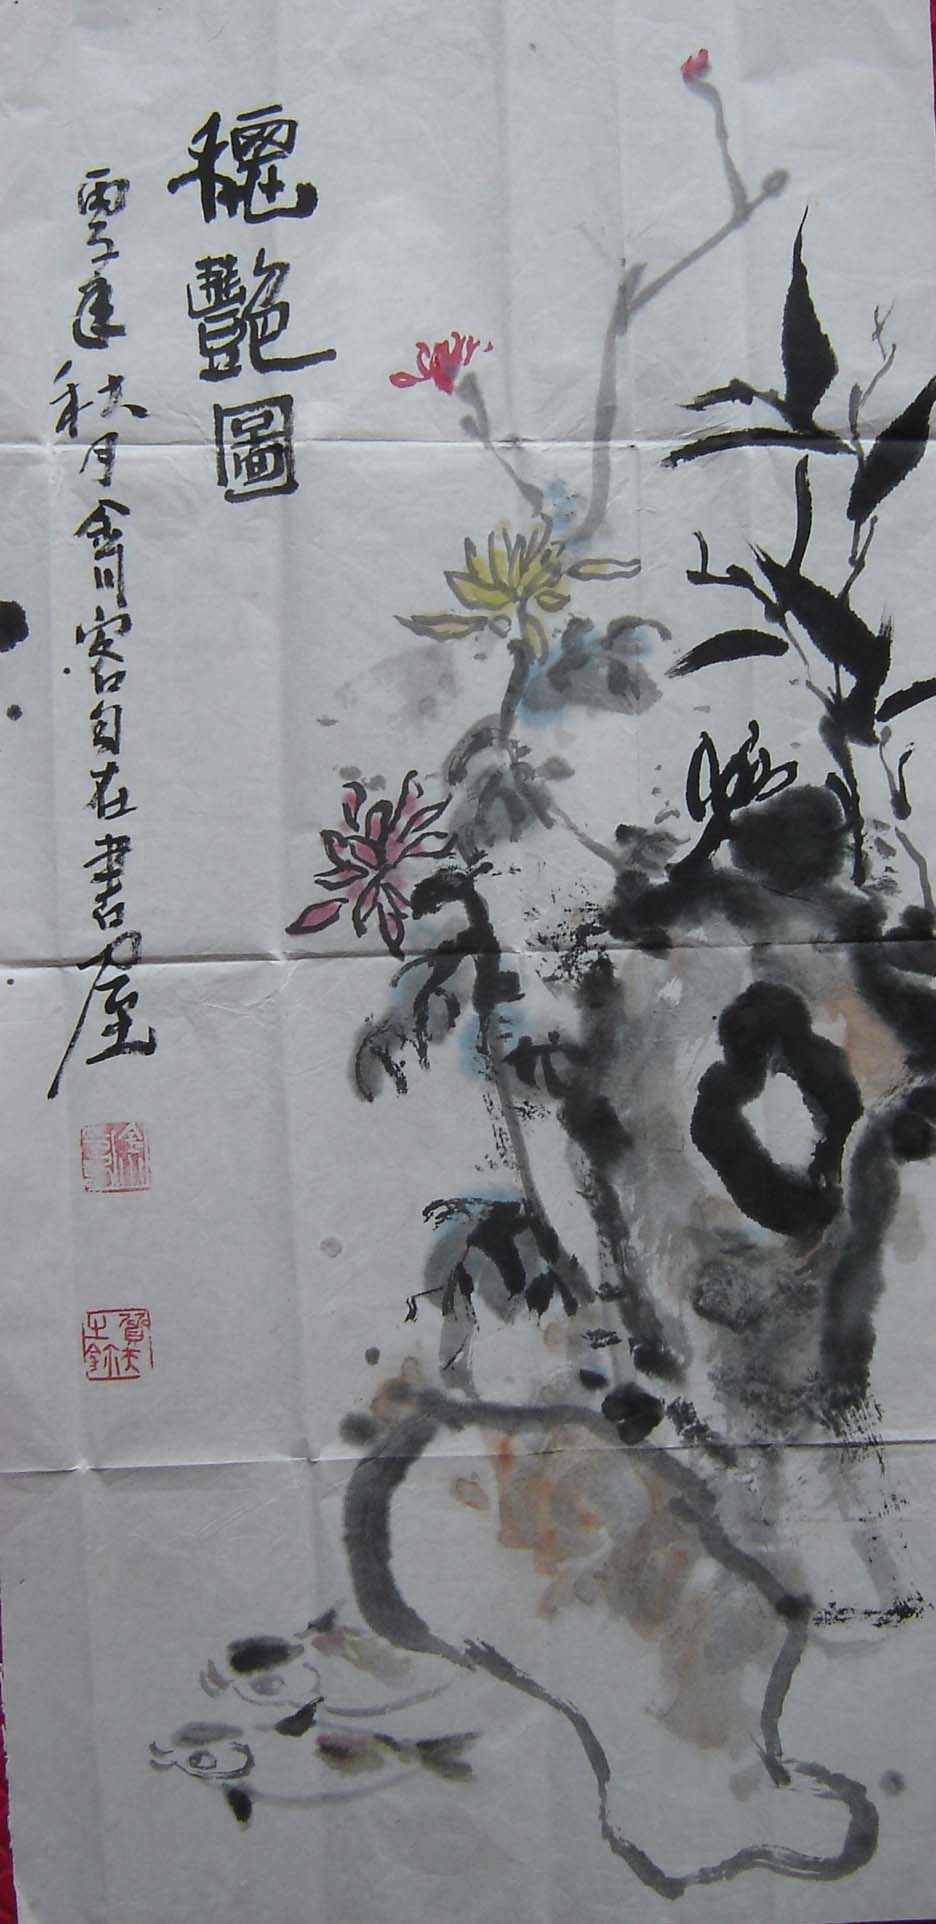 穠艷圖
丙子年秋月金川客自在書屋